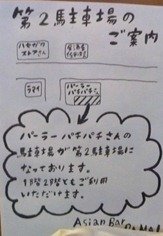 第2駐車場の
ご案内
ストアさん
パーラー
パチパチさん
パーラーパチパチさんの
駐車場が第2駐車場に
なっております。
1階2階ともご利用
いただけます。
Asian Bar